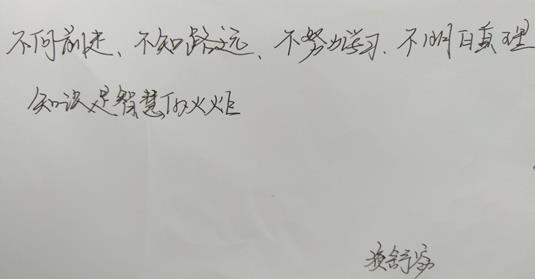 不向前走、不知路远、不努力学习、不明白真理
知识是智慧的火炬